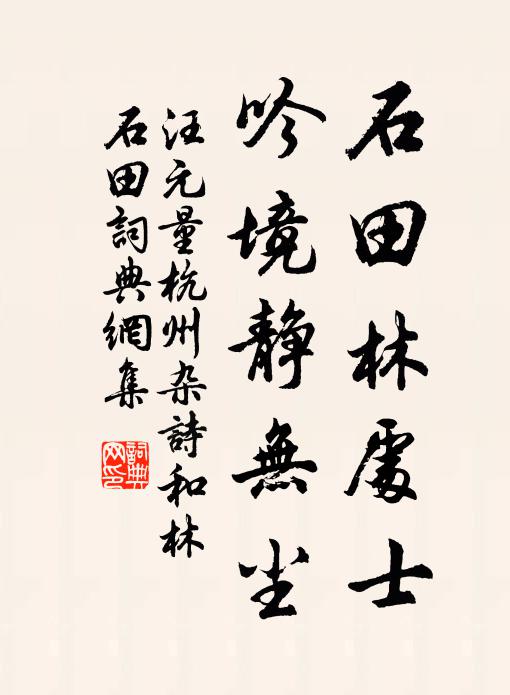 石田林處士
吟境靜無尘
汪元量杭州杂詩和林
石田詞典網集
詞典网印